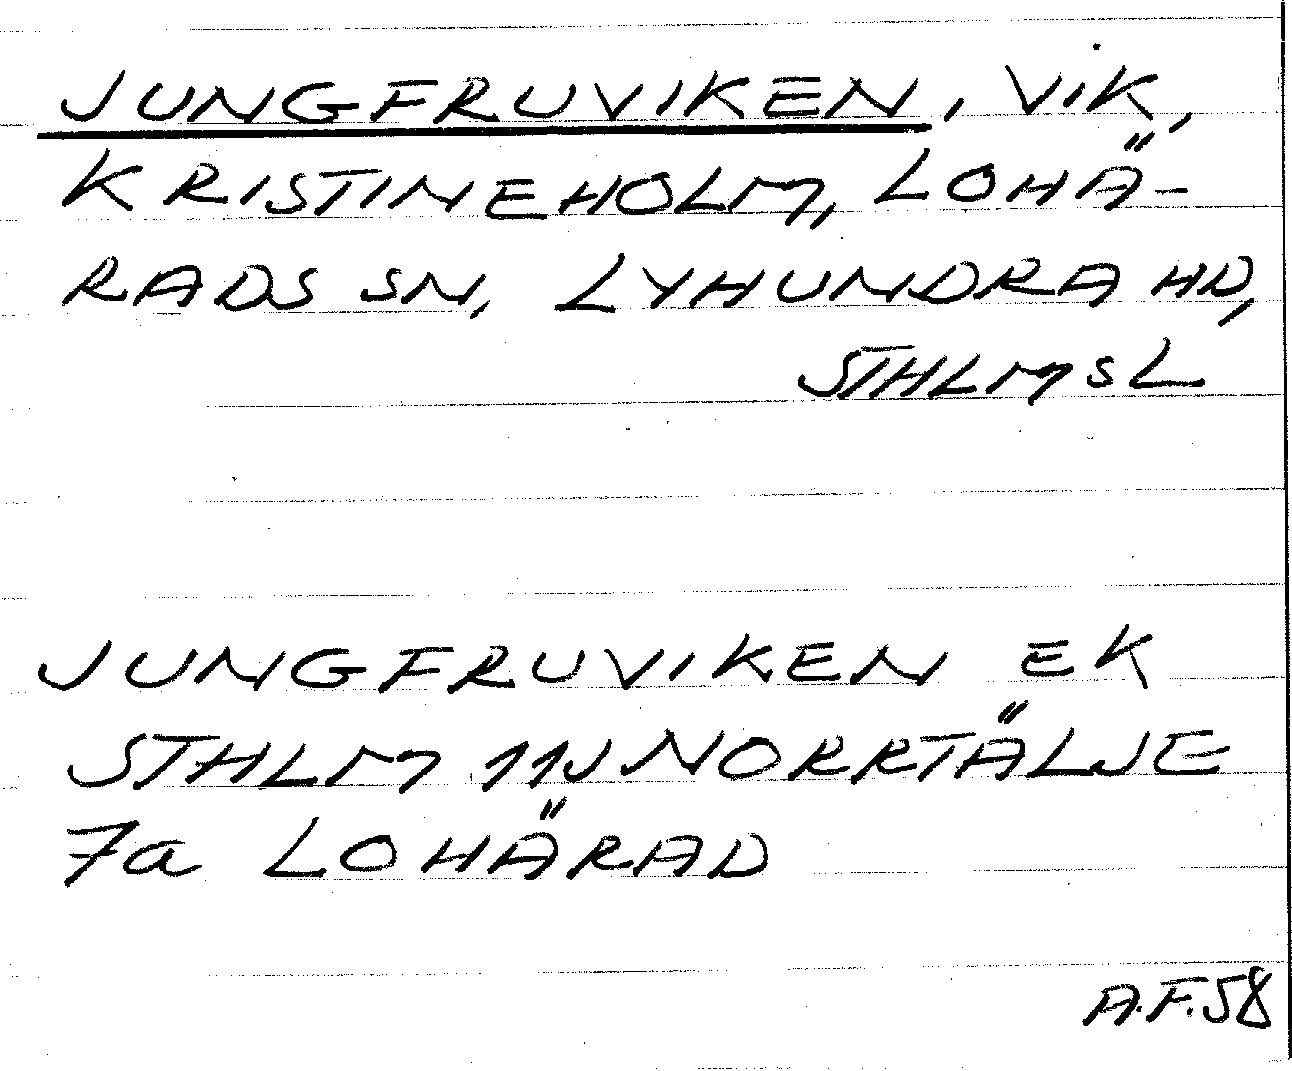 JUNGFRUVIKEN, VIK,
KRISTINEHOLM, LOHÄ-
RADS SN, LYHUNDRA HD,
STHLMSL
JUNGFRUVIKEN EK
STHLM 11J NORRTÄLJE
7a LOHÄRAD
A.F.58